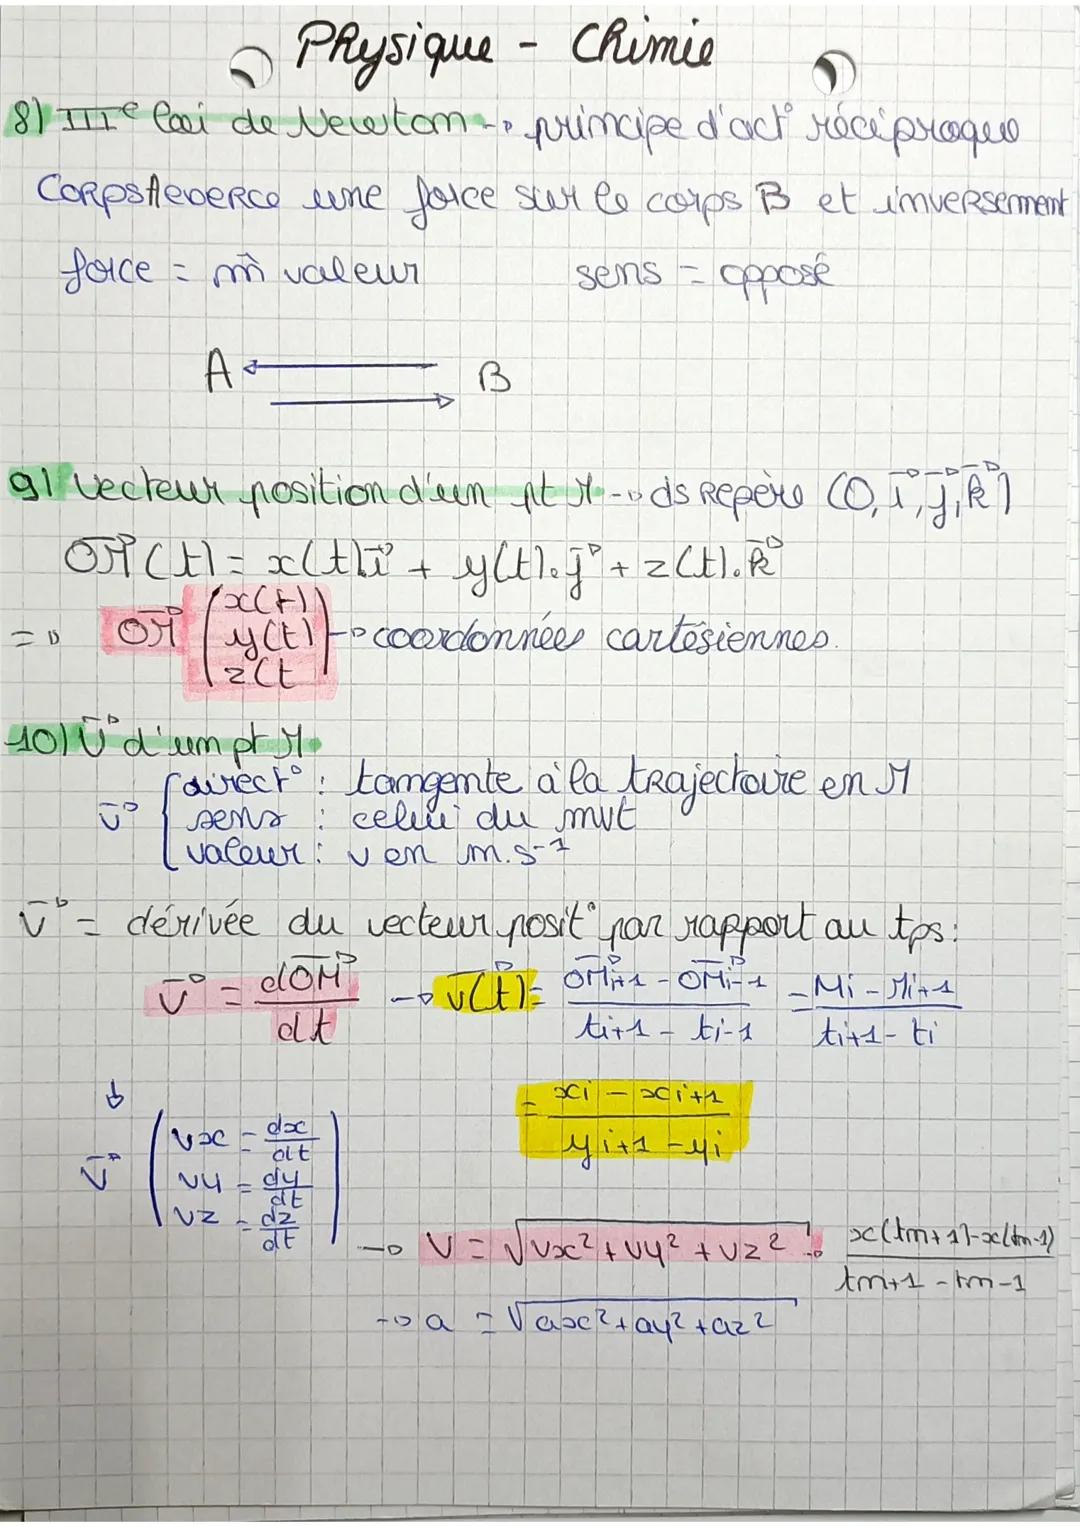 Physique - Chimie
8) IIIe Loi de Newton → principe d'act° réciproque
Corps A exerce une force sur le corps B et inversement
force = m̂ valeur sens = opposé
A B
9) Vecteur position d'un pt M → ds Repère (O, i⃗, j⃗, k⃗)
OM⃗(t) = x(t).i⃗ + y(t).j⃗ + z(t).k⃗
=> OM⃗ (x(t) y(t) z(t) → coordonnées cartésiennes.
10) V⃗ d'un pt M
direct° : tangente à la trajectoire en M
v⃗ { sens : celui du mvt
valeur : v en m.s-1
v⃗ = dérivée du vecteur posit° par rapport au tps :
v⃗ = dOM⃗/dt → v⃗(t) = (OM⃗i+1 - OM⃗i-1)/(ti+1 - ti-1) = (Mi - Mi+1)/(ti+1 - ti)
↓ = (xi - xi+1)/(yi+1 - yi)
v⃗ (vx = dx/dt
vy = dy/dt
vz = dz/dt)
→ V = √vx² + vy² + vz² → (x(tn+1)-x(tn-1))/(tn+1 - tn-1)
→ a = √ax² + ay² + az²